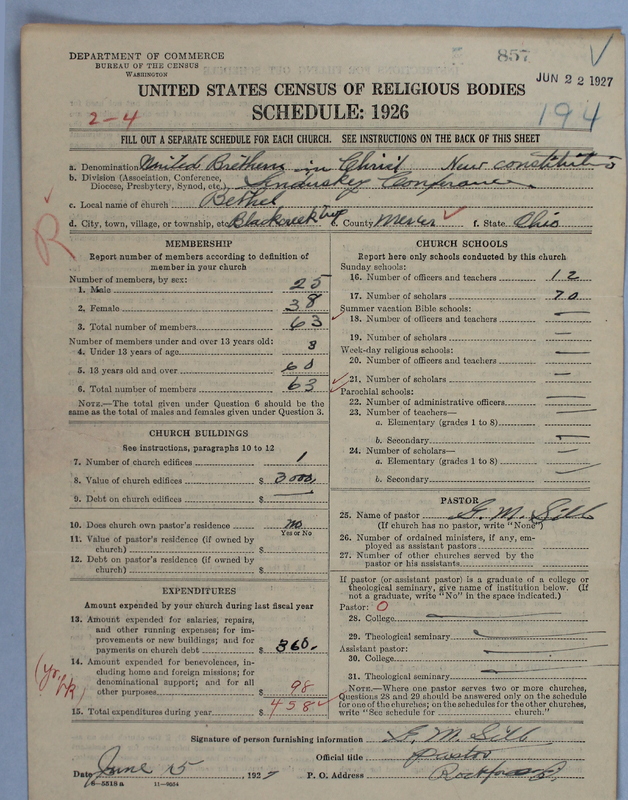 857
JUN 22 1927
194
DEPARTMENT OF COMMERCE
BUREAU OF THE CENSUS
WASHINGTON
UNITED STATES CENSUS OF RELIGIOUS BODIES
SCHEDULE: 1926
2-4
FILL OUT A SEPARATE SCHEDULE FOR EACH CHURCH. SEE INSTRUCTIONS ON THE BACK OF THIS SHEET
a. Denomination United Brethern in Christ New
b. Division (Association, Conference,
Diocese, Presbytery, Synod, etc.)
c. Local name of church Bethel
d. City, town, village, or township, etc. Blackcreek Twp e. County Mercer f. State Ohio
R
MEMBERSHIP
Report number of members according to definition of
member in your church
Number of members, by sex:
1. Male 25
2. Female 38
3. Total number of members 63
Number of members under and over 13 years old:
4. Under 13 years of age 3
5. 13 years old and over 60
6. Total number of members 63
NOTE.—The total given under Question 6 should be the
same as the total of males and females given under Question 3.
CHURCH BUILDINGS
See instructions, paragraphs 10 to 12
7. Number of church edifices 1
8. Value of church edifices $ 3000,
9. Debt on church edifices $ —
10. Does church own pastor's residence no
Yes or No
11. Value of pastor's residence (if owned by
church) $
12. Debt on pastor's residence (if owned by
church) $
EXPENDITURES
Amount expended by your church during last fiscal year
13. Amount expended for salaries, repairs,
and other running expenses; for im-
provements or new buildings; and for
payments on church debt $ 360.
14. Amount expended for benevolences, in-
cluding home and foreign missions; for
denominational support; and for all
other purposes 98
15. Total expenditures during year $ 458
CHURCH SCHOOLS
Report here only schools conducted by this church
Sunday schools:
16. Number of officers and teachers 12
17. Number of scholars 70
Summer vacation Bible schools:
18. Number of officers and teachers —
19. Number of scholars —
Week-day religious schools:
20. Number of officers and teachers —
21. Number of scholars —
Parochial schools:
22. Number of administrative officers —
23. Number of teachers—
a. Elementary (grades 1 to 8) —
b. Secondary —
24. Number of scholars—
a. Elementary (grades 1 to 8) —
b. Secondary —
PASTOR
25. Name of pastor G. M. Sill
(If church has no pastor, write "None")
26. Number of ordained ministers, if any, em-
ployed as assistant pastors
27. Number of other churches served by the
pastor or his assistants
If pastor (or assistant pastor) is a graduate of a college or
theological seminary, give name of institution below. (If
not a graduate, write "No" in the space indicated.)
Pastor: 0
28. College —
29. Theological seminary —
Assistant pastor:
30. College —
31. Theological seminary —
NOTE.—Where one pastor serves two or more churches,
Questions 28 and 29 should be answered only on the schedule
for one of the churches; on the schedules for the other churches,
write "See schedule for church."
Signature of person furnishing information G. M. Sill
Official title pastor
Date June 15, 1927 P. O. Address Rockford O.
8-5518a 11-9554